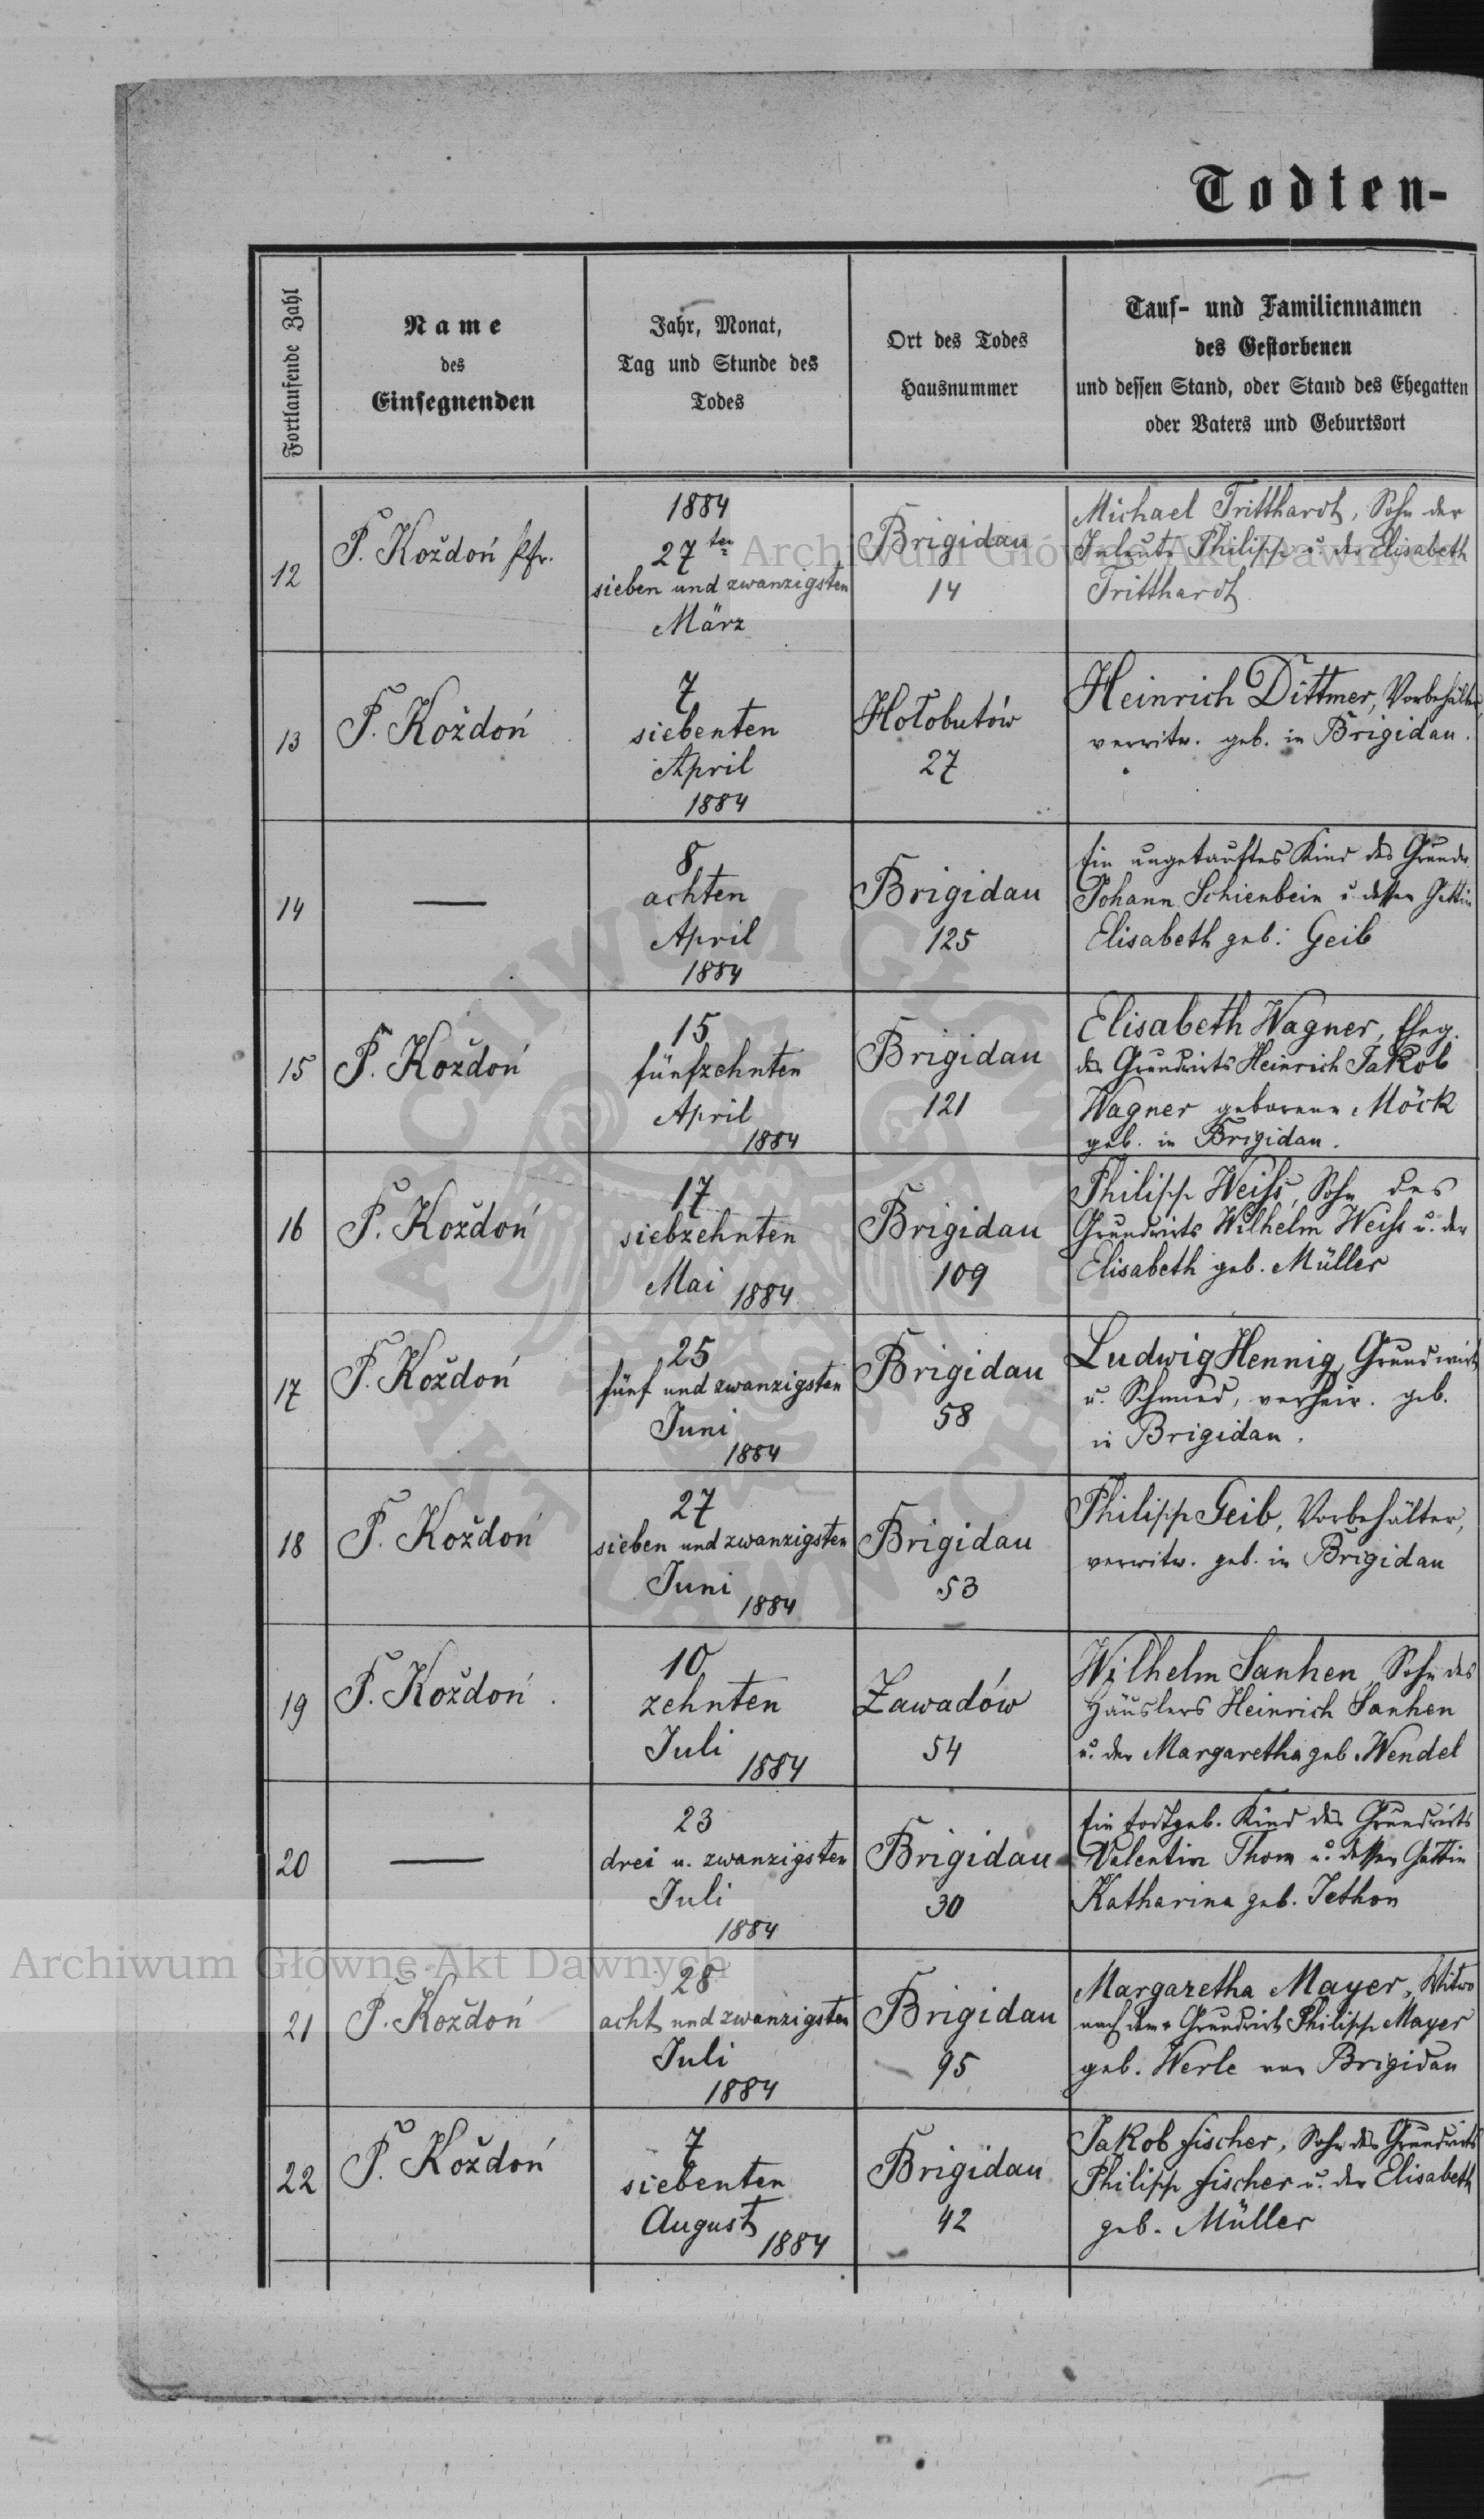 Todten-
Fortlaufende Zahl
Name
des
Einsegnenden
Jahr, Monat,
Tag und Stunde des
Todes
Ort des Todes
Hausnummer
Tauf- und Familiennamen
des Gestorbenen
und dessen Stand, oder Stand des Ehegatten
oder Vaters und Geburtsort
12
P. Koždoń Pfr.
1884
27ten
sieben und zwanzigsten
März
Brigidau
14
Michael Tritthardt, Sohn der
Inleute Philipp u. der Elisabeth
Tritthardt
13
P. Koždoń
7
siebenten
April
1884
Hołobutów
27
Heinrich Dittmer, Vorbehälter,
verwitw. geb. in Brigidau.
14
—
8
achten
April
1884
Brigidau
125
Ein ungetauftes Kind des Grundw.
Johann Schienbein u. dessen Gattin
Elisabeth geb. Geib
15
P. Koždoń
15
fünfzehnten
April
1884
Brigidau
121
Elisabeth Wagner, Eheg.
des Grundwirts Heinrich Jakob
Wagner geborene Möck
geb. in Brigidau.
16
P. Koždoń
17
siebzehnten
Mai 1884
Brigidau
109
Philipp Weiss, Sohn des
Grundwirts Wilhelm Weiss u. der
Elisabeth geb. Müller
17
P. Koždoń
25
fünf und zwanzigsten
Juni
1884
Brigidau
58
Ludwig Hennig, Grundwirt
u. Schmied, verheir. geb.
in Brigidau.
18
P. Koždoń
27
sieben und zwanzigsten
Juni
1884
Brigidau
53
Philipp Geib, Vorbehälter,
verwitw. geb. in Brigidau
19
P. Koždoń.
10
zehnten
Juli
1884
Zawadów
54
Wilhelm Sanhen, Sohn des
Häuslers Heinrich Sanhen
u. der Margaretha geb. Wendel
20
—
23
drei u. zwanzigsten
Juli
1884
Brigidau
30
Ein todtgeb. Kind des Grundwirts
Valentin Thom u. dessen Gattin
Katharina geb. Jethon
21
P. Koždoń
28
acht und zwanzigsten
Juli
1884
Brigidau
95
Margaretha Mayer, Witwe
nach dem Grundwirt Philipp Mayer
geb. Werle aus Brigidau
22
P. Koždoń
7
siebenten
August
1884
Brigidau
42
Jakob Fischer, Sohn des Grundwirts
Philipp Fischer u. der Elisabeth
geb. Müller
Archiwum Główne Akt Dawnych
Archiwum Główne Akt Dawnych
ARCHIWUM GŁÓWNE AKT DAWNYCH